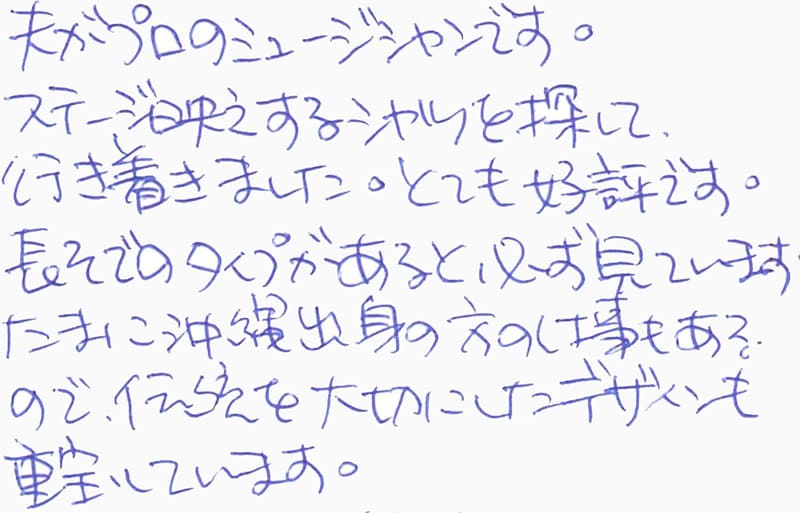 夫がプロのミュージシャンです。
ステージ映えするシャツを探して、
行き着きました。とても好評です。
長そでのタイプがあると必ず見ています
たまに沖縄出身の方の仕事もある
ので、伝統を大切にしたデザインも
重宝しています。